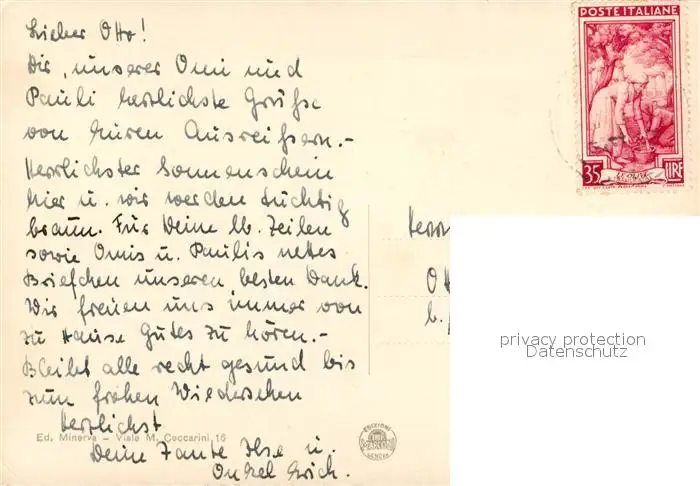 POSTE ITALIANE
35 LIRE
Lieber Otto!
Dir, unserer Omi und
Pauli herzlichste Grüsse
von Euren Ausreissern.-
Herrlichster Sonnenschein
hier u. wir werden tüchtig
braun. Für Deine lb. Zeilen
sowie Omis u. Paulis nettes
Briefchen unseren besten Dank.
Wir freuen uns immer von
zu Hause Gutes zu hören.-
Bleibt alle recht gesund bis
zum frohen Wiedersehen
herzlichst
Deine Tante Ilse u.
Onkel Erich.
Ed. Minerva - Viale M. Ceccarini, 16
EDIZIONI
GENOVA
Herrn
Ot
b.
privacy protection
Datenschutz